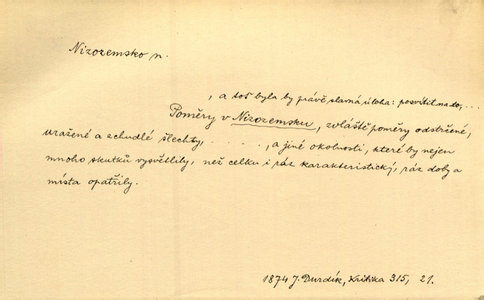 Nizozemsko n.
, a toť byla by právě slavná úloha: posvítit na to, . . .
Poměry v Nizozemsku, zvláště poměry odstrčené,
uražené a schudlé šlechty, . . . . . , a jiné okolnosti, které by nejen
mnoho skutků vysvětlily, než celku i ráz karakteristický, ráz doby a
místa opatřily.
1874 J. Durdík, Kritika 315, 21.